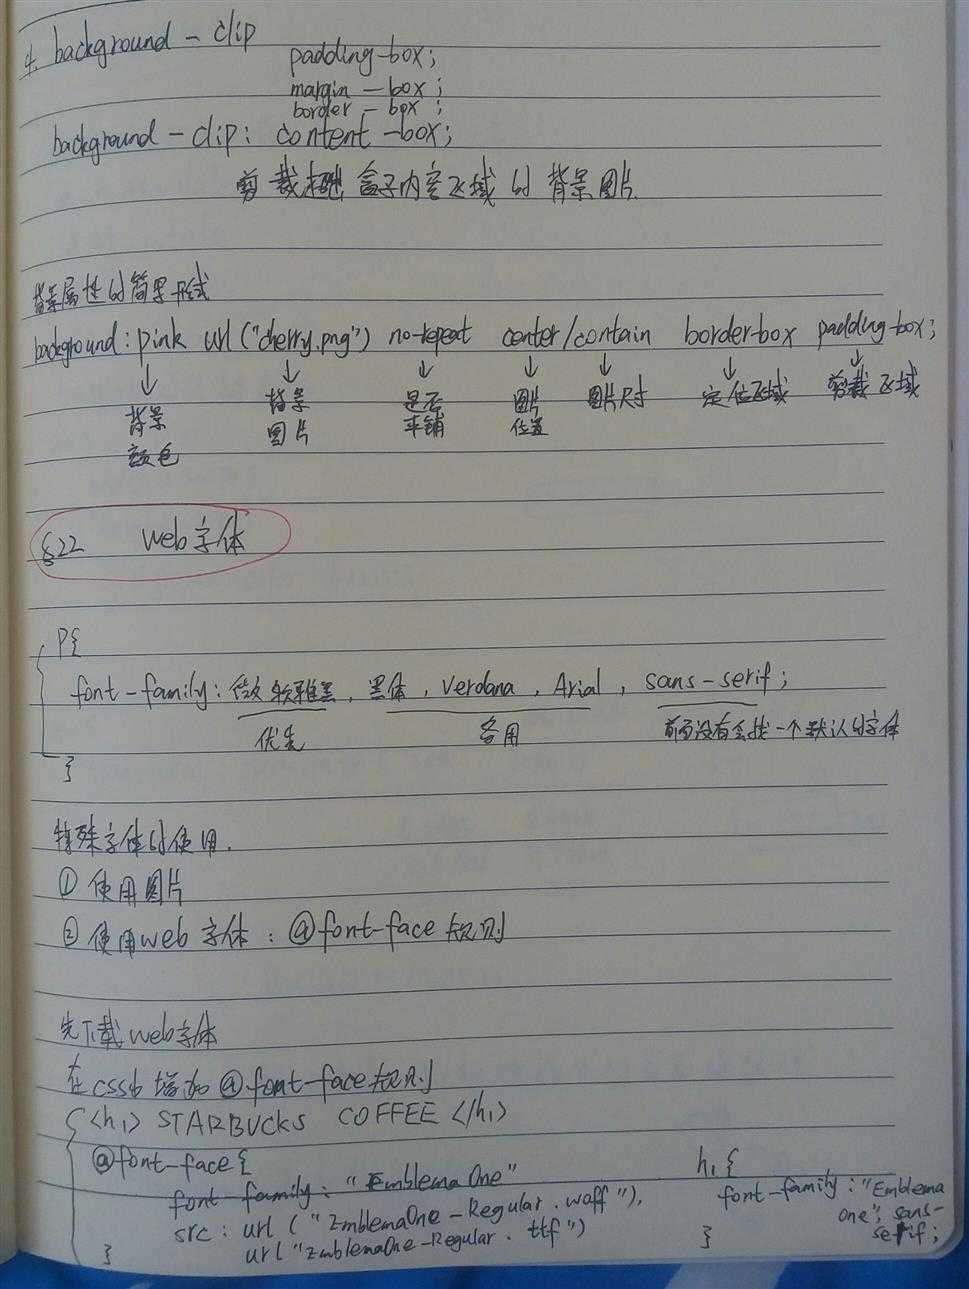 4. background-clip
padding-box;
margin-box;
border-box;
background-clip: content-box;
剪裁超出盒子内容区域的背景图片
背景属性的简写形式
background: pink url("cherry.png") no-repeat center/contain border-box padding-box;
背景颜色 背景图片 是否平铺 图片位置 图片尺寸 定位区域 剪裁区域
§22 web字体
P{
font-family: 微软雅黑, 黑体, Verdana, Arial, sans-serif;
优先 备用 前面没有会找一个默认的字体
}
特殊字体的使用.
① 使用图片
② 使用web字体: @font-face规则
先下载web字体
在css中增加@font-face规则
<h1> STARBUCKS COFFEE </h1>
@font-face{
font-family: "Emblema One"
src: url ("EmblemaOne-Regular.woff"),
url("EmblemaOne-Regular.ttf")
}
h1{
font-family: "Emblema
One", sans-
serif;
}